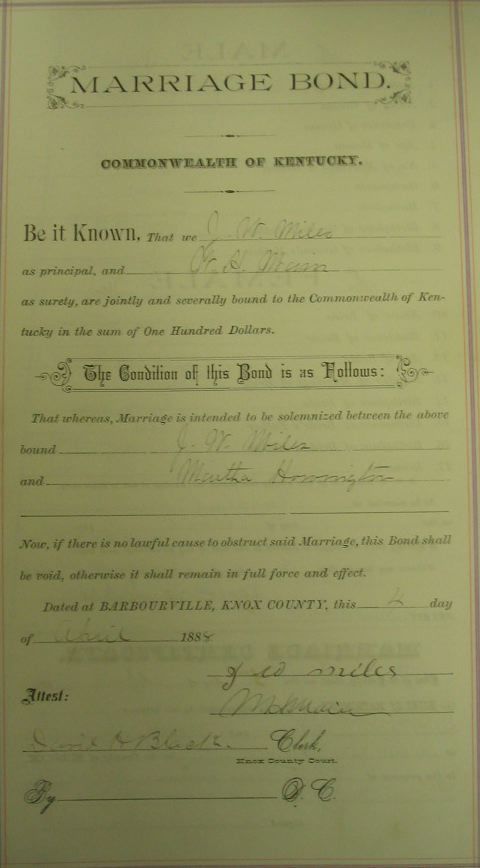 MARRIAGE BOND.
COMMONWEALTH OF KENTUCKY.
Be it Known, That we J. W. Miles
as principal, and W. H.
as surety, are jointly and severally bound to the Commonwealth of Ken-
tucky in the sum of One Hundred Dollars.
The Condition of this Bond is as Follows:
That whereas, Marriage is intended to be solemnized between the above
bound J. W. Miles
and Martha
Now, if there is no lawful cause to obstruct said Marriage, this Bond shall
be void, otherwise it shall remain in full force and effect.
Dated at BARBOURVILLE, KNOX COUNTY, this 4 day
of April 1888
J W miles
Attest:
David H Black. Clerk,
Knox County Court.
By D. C.